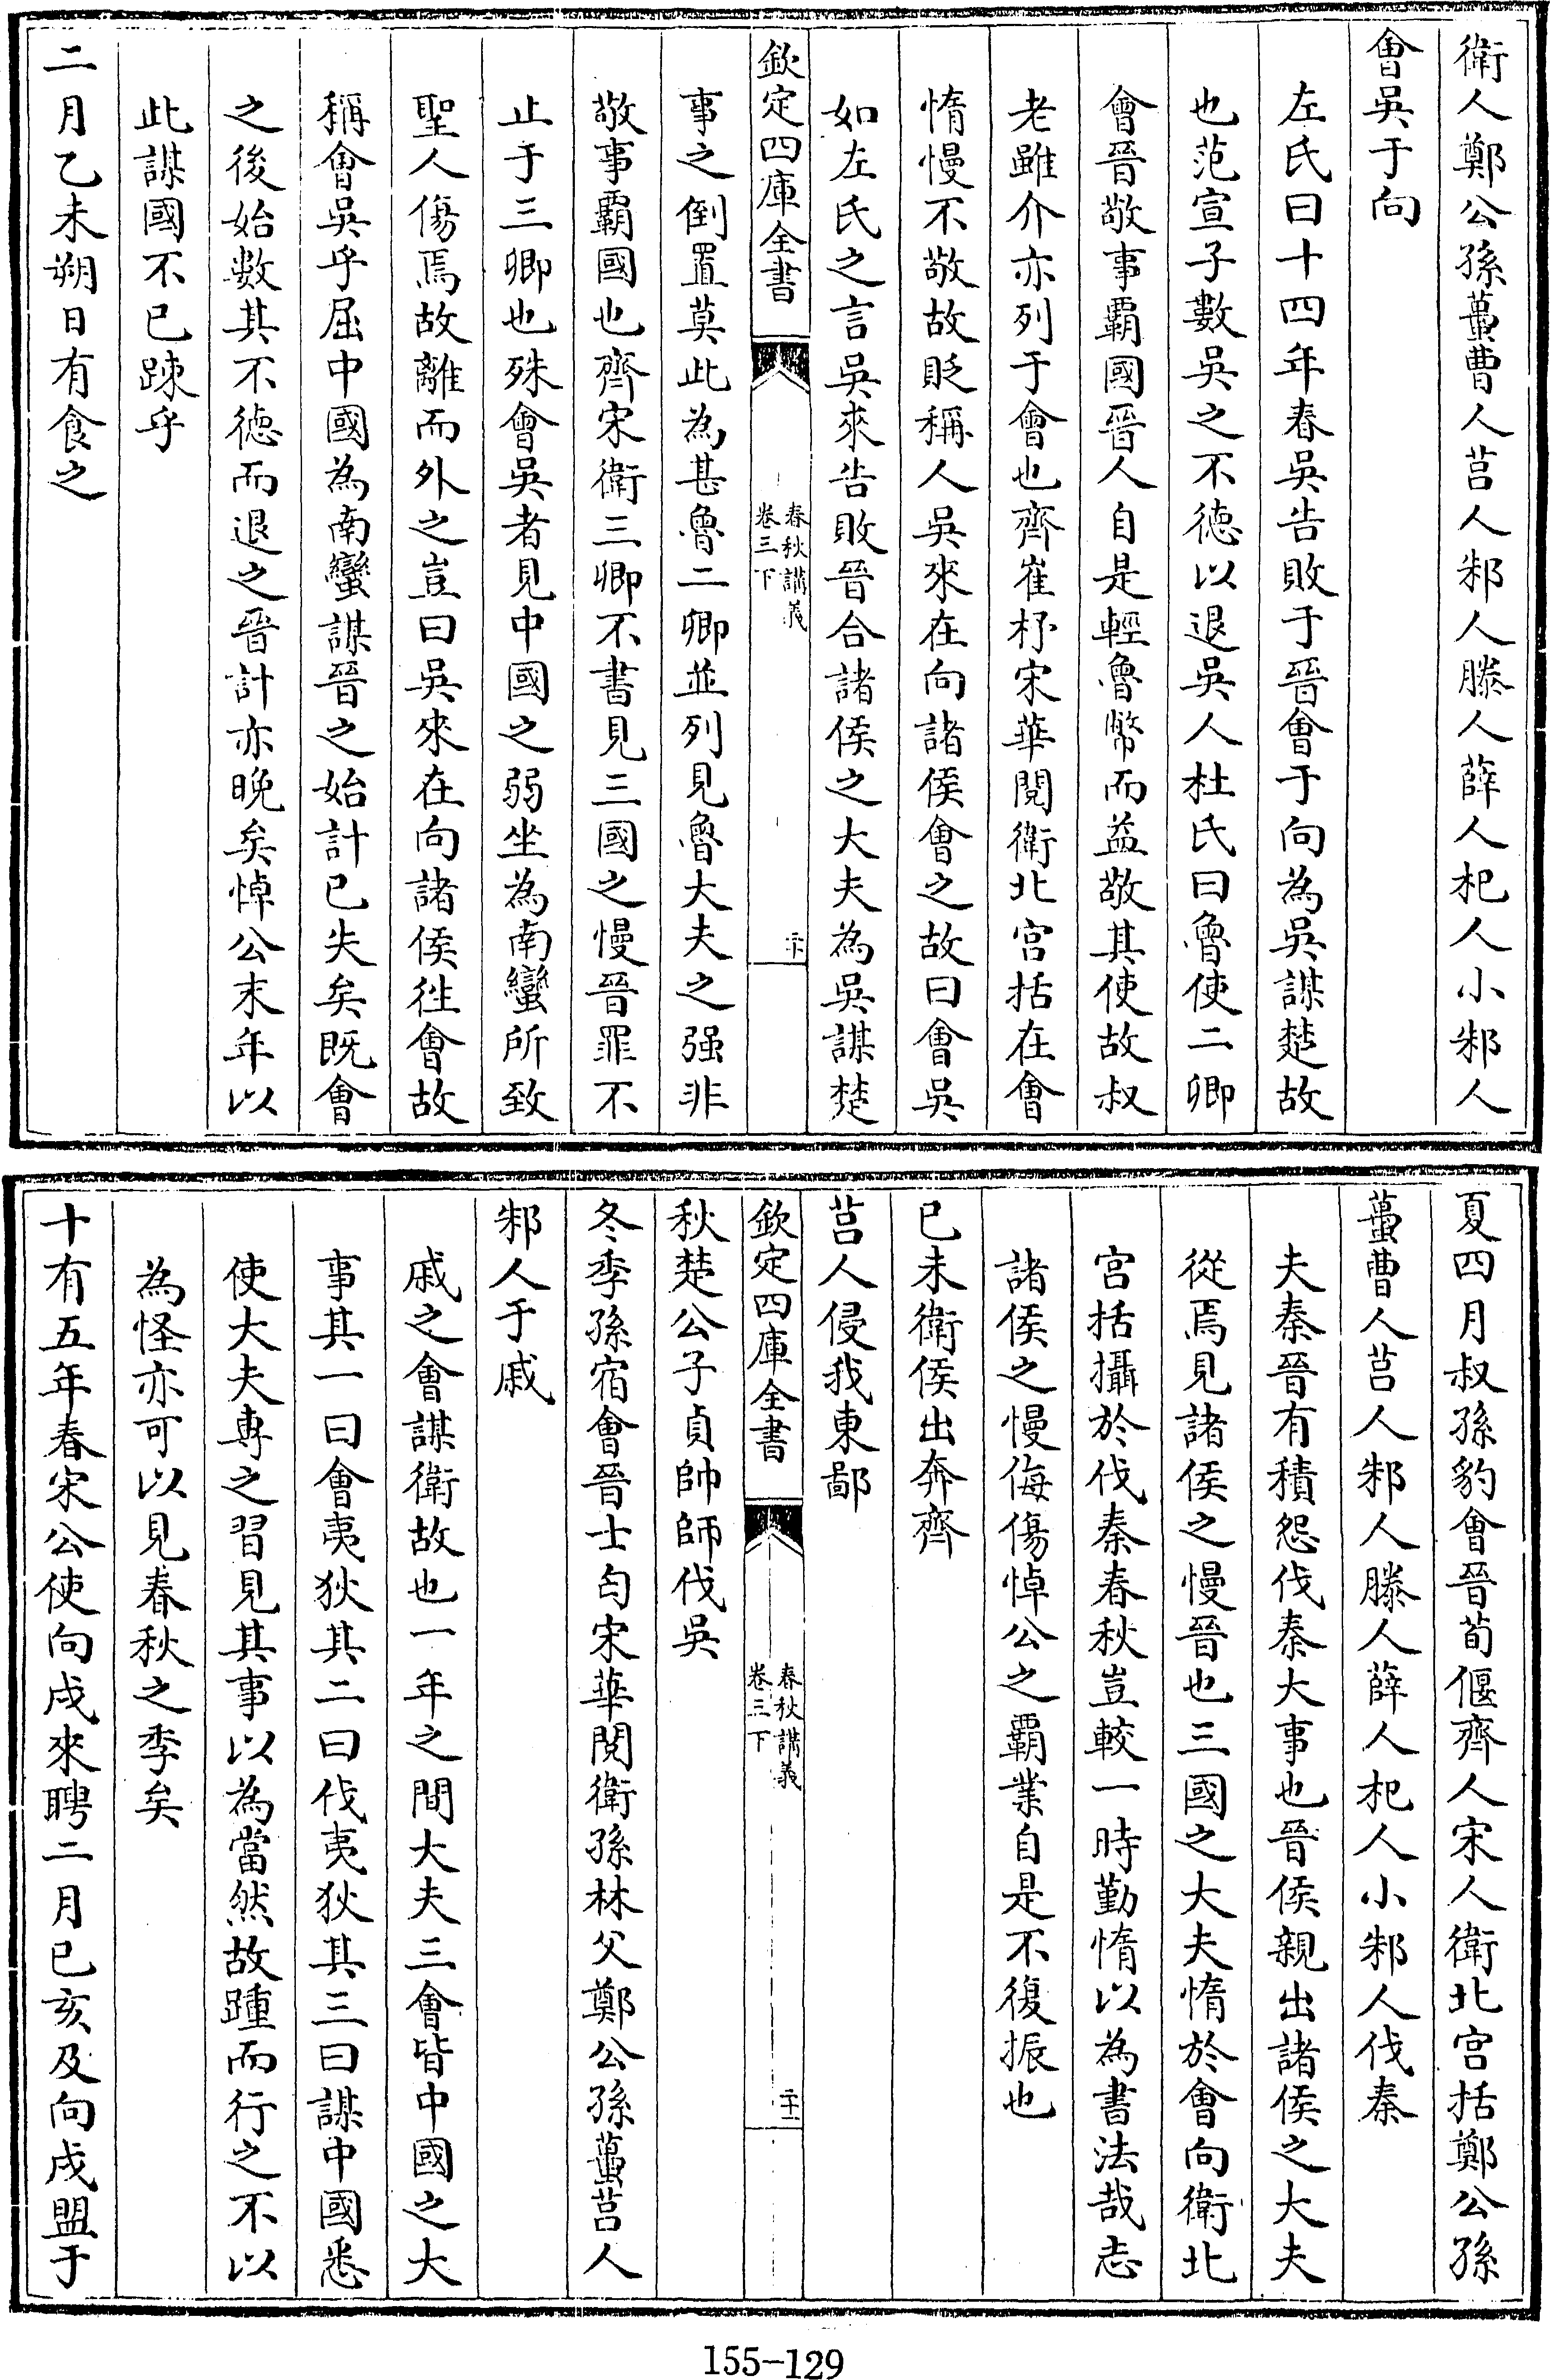 衛人鄭公孫蠆曹人莒人邾人滕人薛人杞人小邾人
會吳于向
左氏曰十四年春吳告敗于晉會于向為吳謀楚故
也范宣子數吳之不徳以退吳人杜氏曰魯使二卿
會晉敬事霸國晉人自是輕魯幣而益敬其使故叔
老雖介亦列于會也齊崔杼宋華閱衛北宫括在會
惰慢不敬故貶稱人吳來在向諸侯會之故曰會吳
如左氏之言吳來告敗晉合諸侯之大夫為吳謀楚
欽定四庫全書
春秋講義
卷三下
二十
事之倒置莫此為甚魯二卿並列見魯大夫之强非
敬事霸國也齊宋衛三卿不書見三國之慢晉罪不
止于三卿也殊會吳者見中國之弱坐為南蠻所致
聖人傷焉故離而外之豈曰吳來在向諸侯徃會故
稱會吳乎屈中國為南蠻謀晉之始計已失矣既會
之後始數其不徳而退之晉計亦晚矣悼公末年以
此謀國不已踈乎
二月乙未朔日有食之
夏四月叔孫豹會晉荀偃齊人宋人衛北宫括鄭公孫
蠆曹人莒人邾人滕人薛人杞人小邾人伐秦
夫秦晉有積怨伐秦大事也晉侯親出諸侯之大夫
從焉見諸侯之慢晉也三國之大夫惰於會向衛北
宫括攝於伐秦春秋豈較一時勤惰以為書法哉志
諸侯之慢侮傷悼公之霸業自是不復振也
已未衛侯出奔齊
莒人侵我東鄙
欽定四庫全書
春秋講義
卷三下
二十一
秋楚公子貞帥師伐吳
冬季孫宿會晉士匄宋華閱衛孫林父鄭公孫蠆莒人
邾人于戚
戚之會謀衛故也一年之間大夫三會皆中國之大
事其一曰會夷狄其二曰伐夷狄其三曰謀中國悉
使大夫専之習見其事以為當然故踵而行之不以
為怪亦可以見春秋之季矣
十有五年春宋公使向戌來聘二月已亥及向戌盟于
155-129